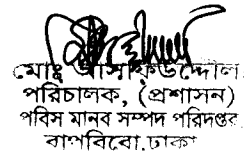 মোঃ আসাফউদ্দৌলা
পরিচালক, (প্রশাসন)
পবিস মানব সম্পদ পরিদপ্তর
বাপবিবো, ঢাকা